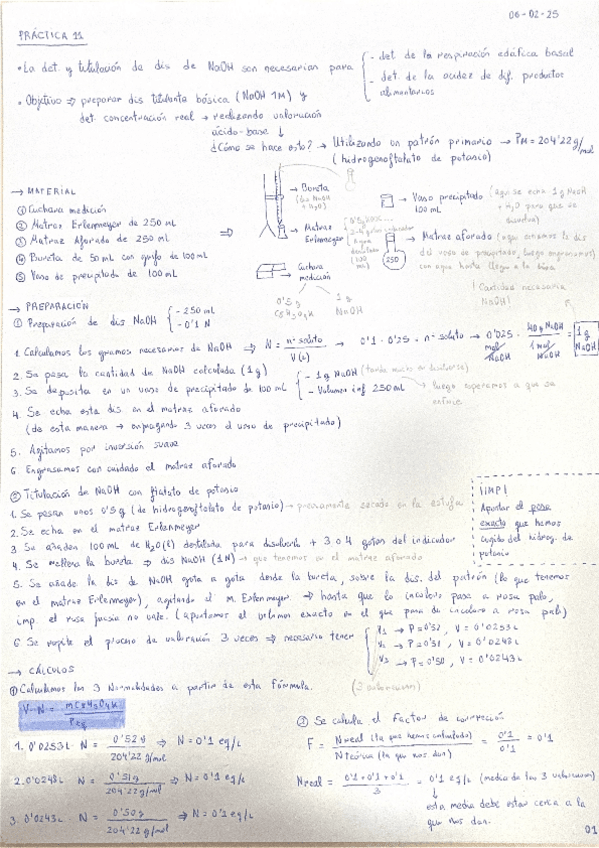 06-02-25
PRÁCTICA 11
• La det. y titulación de dis de NaOH son necesarias para
- det. de la respiración edáfica basal
- det. de la acidez de dif. productos alimentarios
• Objetivo ⇒ preparar dis titulante básica (NaOH 1M) y
det. concentración real → realizando valoración
ácido-base ↓
¿Cómo se hace esto? → Utilizando un patrón primario → PM = 204'22 g/mol
(hidrogenoftalato de potasio)
→ MATERIAL
① Cuchara medición
② Matraz Erlenmeyer de 250 mL
③ Matraz Aforado de 250 mL
④ Bureta de 50 mL con
⑤ Vaso de precipitado de 100 mL
⇒
→ Bureta
(con NaOH + H2O)
→ Matraz Erlenmeyer
Cuchara medición
0'5g C8H5O4K
1g NaOH
→ Vaso precipitado 100 mL
(aquí se echa 1g NaOH + H2O para que se
→ Matraz aforado (aquí echamos la dis
250
del vaso de precipitado, luego enrasamos)
con agua hasta llegar a la línea
! Cantidad necesaria NaOH!
→ PREPARACIÓN
① Preparación de dis NaOH
- 250 mL
- 0'1 N
1. Calculamos los gramos necesarios de NaOH ⇒ N = nº soluto / V(L) → 0'1 · 0'25 = nº soluto → 0'025 mol NaOH · 40g NaOH / 1 mol NaOH = 1g NaOH
2. Se pesa la cantidad de NaOH calculada (1g)
3. Se deposita en un vaso de precipitado de 100 mL
- 1g NaOH (tarda mucho en disolverse)
- Volumen inf 250 mL → luego esperamos a que se enfríe
4. Se echa esta dis en el matraz aforado
(de esta manera → enjuagando 3 veces el vaso de precipitado)
5. Agitamos por inversión suave
6. Enrasamos con cuidado el matraz aforado
② Titulación de NaOH con ftalato de potasio
1. Se pesan unos 0'5g (de hidrogenoftalato de potasio) → previamente secado en la estufa
2. Se echa en el matraz Erlenmeyer
3. Se añaden 100 mL de H2O(l) destilada para disolverlo + 3 o 4 gotas del indicador
4. Se rellena la bureta ⇒ dis NaOH (1N) → que tenemos en el matraz aforado
¡IMP!
Apuntar el peso
exacto que hemos
cogido del hidrog. de
potasio
5. Se añade la dis de NaOH gota a gota desde la bureta, sobre la dis. del patrón (lo que tenemos
en el matraz Erlenmeyer), agitando el M. Erlenmeyer. ⇒ hasta que lo incoloro pasa a rosa palo,
imp. el rosa no vale. (apuntamos el volumen exacto en el que pasa de incoloro a rosa palo)
6. Se repite el proceso de valoración 3 veces ⇒ necesario tener
V1 → P = 0'52, V = 0'0253L
V2 → P = 0'51, V = 0'0248L
V3 → P = 0'50, V = 0'0243L
(3 valoraciones)
→ CÁLCULOS
① Calculamos las 3 Normalidades a partir de esta fórmula.
V · N = mC8H5O4K / Peq
1. 0'0253L · N = 0'52g / 204'22 g/mol ⇒ N = 0'1 eq/L
2. 0'0248L · N = 0'51g / 204'22 g/mol ⇒ N = 0'1 eq/L
3. 0'0243L · N = 0'50g / 204'22 g/mol ⇒ N = 0'1 eq/L
② Se calcula el Factor de corrección
F = Nreal (la que hemos calculado) / Nteórica (la que nos dan) = 0'1 / 0'1 = 0'1
Nreal = 0'1 + 0'1 + 0'1 / 3 = 0'1 eq/L (media de las 3 valoraciones)
↓
esta media debe estar cerca a la
que nos dan.
01